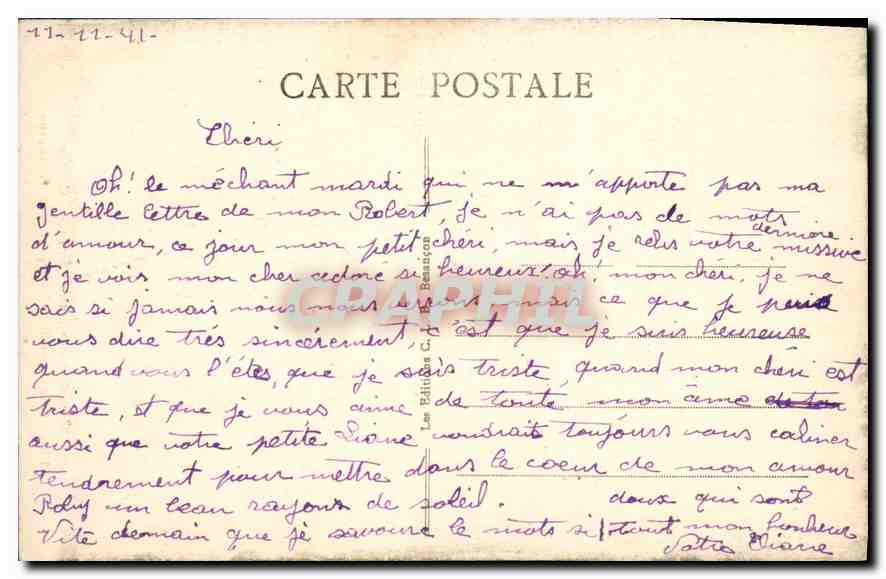 11-11-41-
CARTE POSTALE
Chéri
Oh! le méchant mardi qui ne m'apporte pas ma
gentille lettre de mon Robert, je n'ai pas de mots
d'amour, ce jour mon petit chéri, mais je relis votre dernière missive
et je vois mon cher cedric si heureux! oh! mon chéri, je ne
sais si jamais nous nous verrons mais ce que je puis
vous dire très sincèrement, c'est que je suis heureuse
quand vous l'êtes, que je suis triste, quand mon chéri est
triste, et que je vous aime de toute mon âme
aussi que votre petite Liane voudrait toujours vous caliner
tendrement pour mettre dans le coeur de mon amour
Roby un beau rayons de soleil.
Vite demain que je savoure le mots si doux qui sont tout mon bonheur
Votre Liane
Les Editions C. L. B. Besançon
CPAPHIL